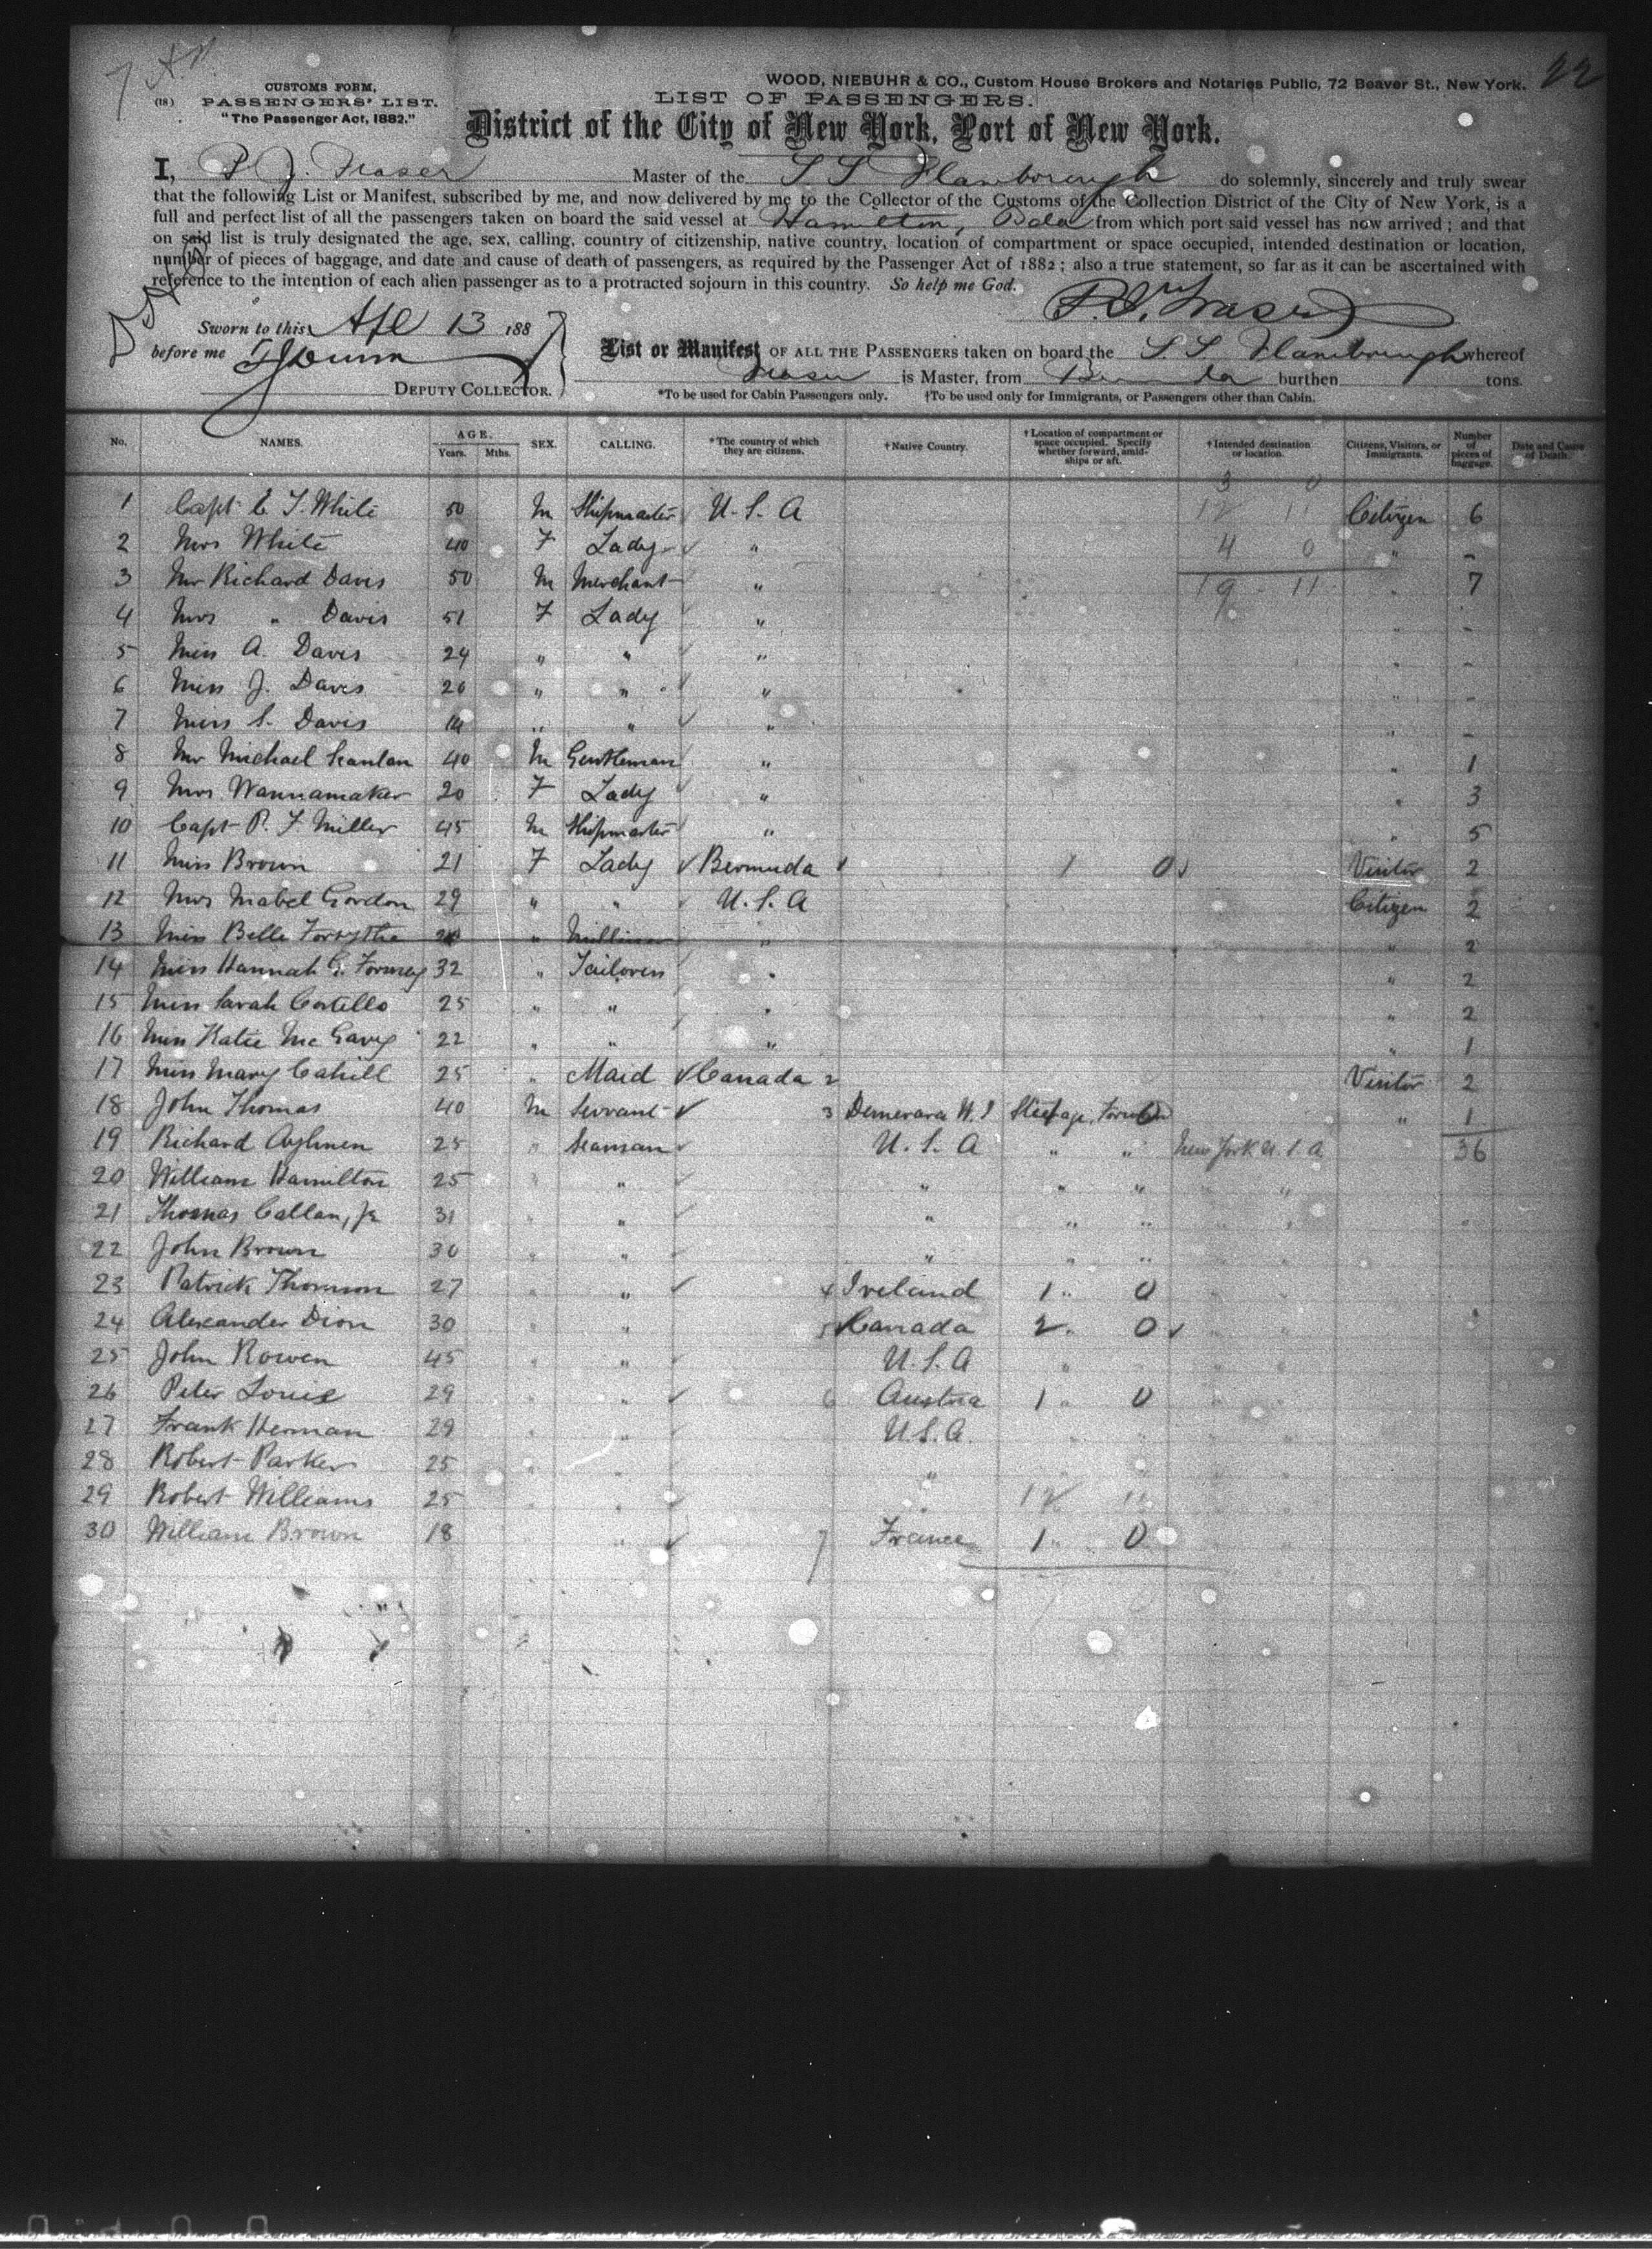 7 A.N.
22
CUSTOMS FORM,
(18) PASSENGERS' LIST.
"The Passenger Act, 1882."
WOOD, NIEBUHR & CO., Custom House Brokers and Notaries Public, 72 Beaver St., New York.
LIST OF PASSENGERS.
District of the City of New York, Port of New York.
I, P J. Fraser Master of the S. S Flamborough do solemnly, sincerely and truly swear
that the following List or Manifest, subscribed by me, and now delivered by me to the Collector of the Customs of the Collection District of the City of New York, is a
full and perfect list of all the passengers taken on board the said vessel at Hamilton, Bda from which port said vessel has now arrived; and that
on said list is truly designated the age, sex, calling, country of citizenship, native country, location of compartment or space occupied, intended destination or location,
number of pieces of baggage, and date and cause of death of passengers, as required by the Passenger Act of 1882; also a true statement, so far as it can be ascertained with
reference to the intention of each alien passenger as to a protracted sojourn in this country. So help me God.
P. J. Fraser
Sworn to this Apl 13 1887
before me
DEPUTY COLLECTOR.
List or Manifest OF ALL THE PASSENGERS taken on board the S. S. Flamborough whereof
Fraser is Master, from Bermuda burthen tons.
*To be used for Cabin Passengers only. †To be used only for Immigrants, or Passengers other than Cabin.
No. NAMES. AGE. Years. Mths. SEX. CALLING. *The country of which they are citizens. †Native Country. †Location of compartment or space occupied. Specify whether forward, amidships or aft. †Intended destination or location. Citizens, Visitors, or Immigrants. Number of pieces of baggage. Date and Cause of Death.
3 0
1 Capt E T. White 50 M Shipmaster U. S. A 12 11 Citizen 6
2 Mrs White 40 F Lady " 4 0 " -
3 Mr Richard Davis 50 M Merchant " 19 11 " 7
4 Mrs " Davis 51 F Lady " " -
5 Miss A. Davis 24 " " " " -
6 Miss J. Davis 20 " " " " -
7 Miss S. Davis 14 " " " " -
8 Mr Michael Scanlan 40 M Gentleman " " 1
9 Mrs. Wannamaker 20 F Lady " " 3
10 Capt P. F Miller 45 M Shipmaster " " 5
11 Miss Brown 21 F Lady Bermuda 1 1 0 Visitor 2
12 Mrs Mabel Gordon 29 " " U. S. A Citizen 2
13 Miss Belle Forsythe " Milliner " " 2
14 Miss Hannah G. Formey 32 " Tailoress " " 2
15 Miss Sarah Costello 25 " " " " 2
16 Miss Katie Mc Gavey 22 " " " " 1
17 Miss Mary Cahill 25 " Maid Canada 2 Visitor 2
18 John Thomas 40 M Servant 3 Demerara W. I Steerage, Forward " 1
19 Richard Aylmen 25 " Seaman U. S. A " " New York U. S. A 36
20 William Hamilton 25 " " " " " " "
21 Thomas Callan, Jr 31 " " " " " " "
22 John Brown 30 " " " " "
23 Patrick Thomson 27 " " 4 Ireland 1 " 0 " "
24 Alexander Dion 30 " " 5 Canada 2 " 0 " "
25 John Rowen 45 " " U. S. A " " "
26 Peter Louis 29 " " 6 Austria 1 " 0 " "
27 Frank Herman 29 " " U. S. A. " " " "
28 Robert Parker 25 " " " " " " "
29 Robert Williams 25 " " " 12 11 " "
30 William Brown 18 " " 7 France 1 " 0 " "